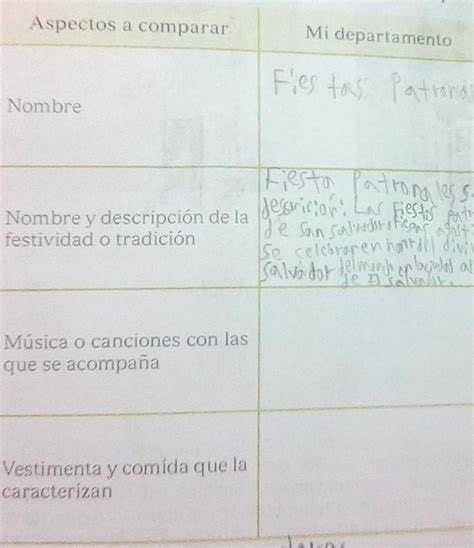 Aspectos a comparar
Mi departamento
Nombre
Fiestas Patrona
Nombre y descripción de la
festividad o tradición
Fiesta Patronales s.
Las Fiestas patr
de san salvador agost
Se celebran en honor divi
Salvador del
de El salvador.
Música o canciones con las
que se acompaña
Vestimenta y comida que la
caracterizan